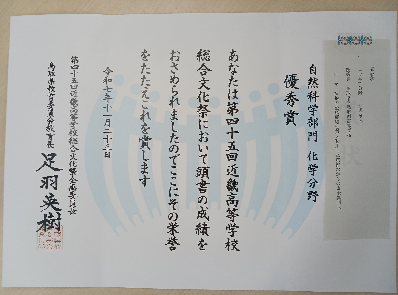 自然科学部門 化学分野
優秀賞
あなたは第四十五回近畿高等学校
総合文化祭において頭書の成績を
おさめられましたのでここにその栄誉
をたたえこれを賞します
令和七年十一月二十三日
第四十五回近畿高等学校総合文化祭
鳥取県教育委員会教育長
足羽英樹